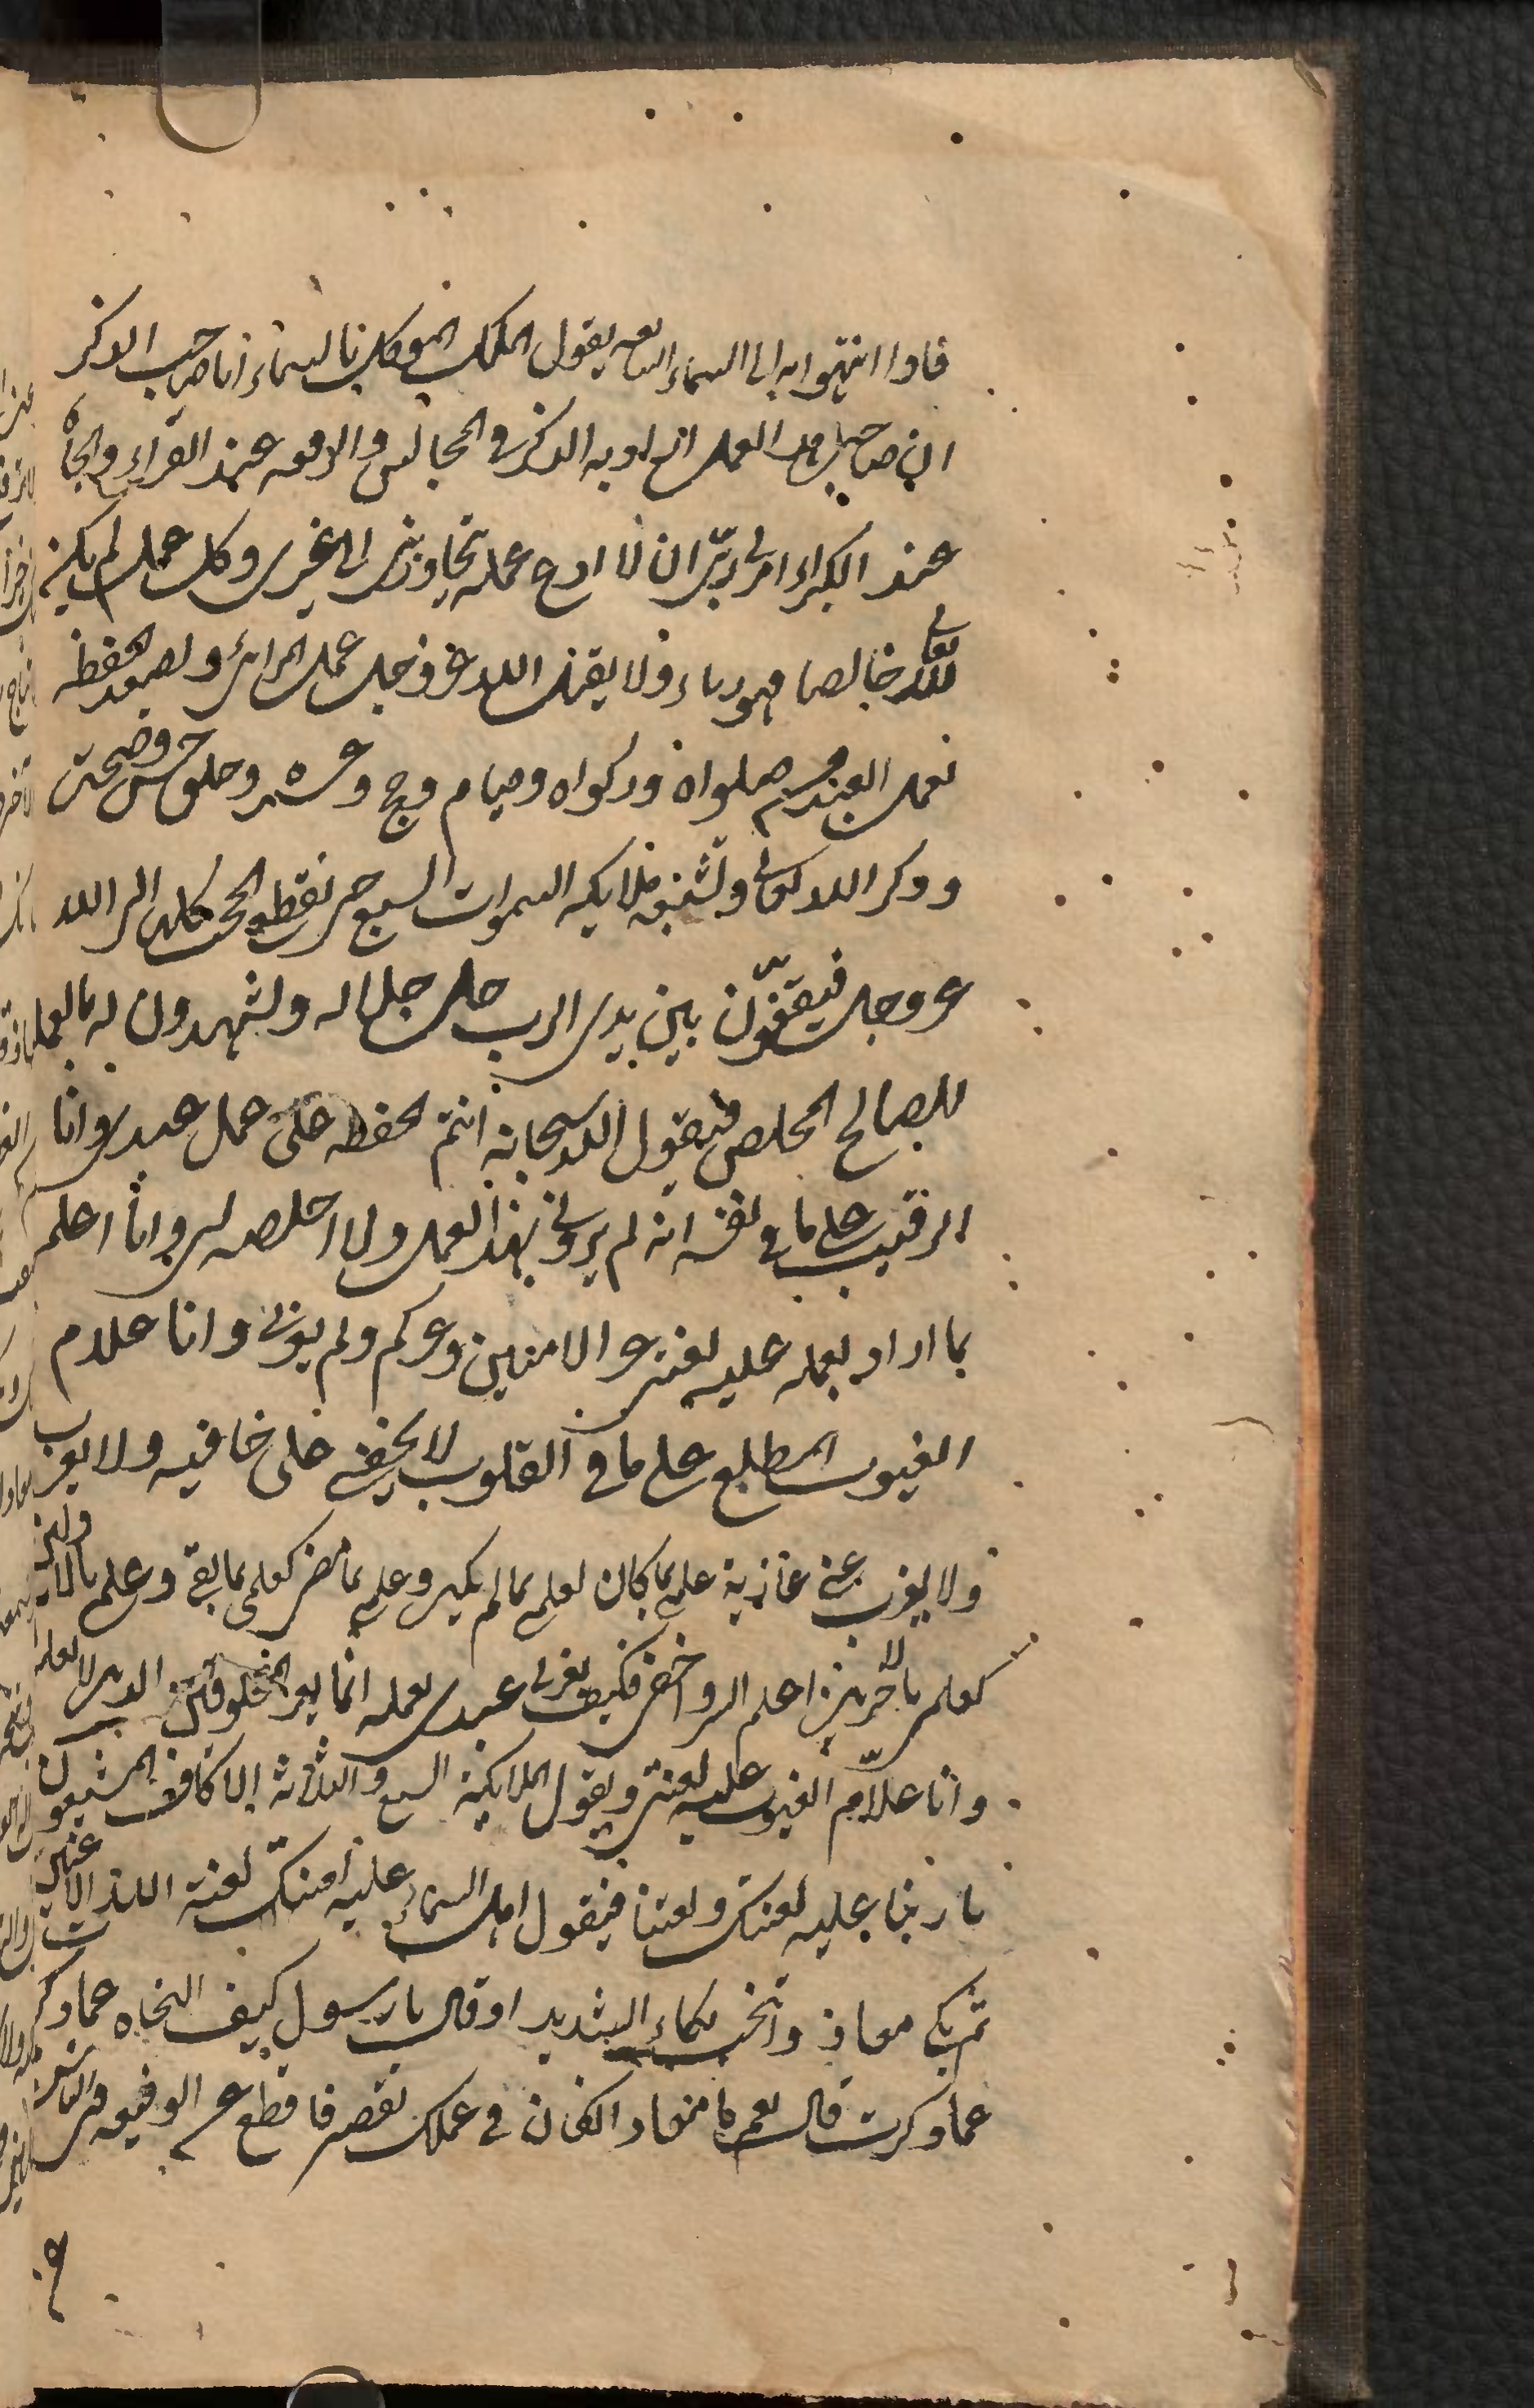 فاذا انتهوا به الى السماء السابعه يقول الملك الموكل بالسماء انا صاحب الذكر
ان صاحب هذا العمل اراد به الذكر فى المجالس والرفعه عند القراء والجاه
عند الكبراء امرنى ربى ان لا ادع عمله تجاوزنى الى غيرى وكل عمل لم يكن
لله تعالى خالصا فهو رياء ولا يقبل الله عز وجل عمل المرائى وتصعد الحفظه
بعمل العبد من صلواة وزكواة وصيام وحج وعمره وخلق حسن وصمت
وذكر الله تعالى وتشيعه ملايكه السموات السبع حتى تقطع الحجب كلها الى الله
عز وجل فيقفون بين يدى الرب جل جلاله ويشهدون له بالعمل
الصالح المخلص فيقول الله سبحانه انتم الحفظه على عمل عبدى وانا
الرقيب على ما فى نفسه انه لم يردنى بهذا العمل ولا اخلصه لى وانا اعلم
بما اراد بعمله عليه لعنتى غر الادميين وغركم ولم يغرنى وانا علام
الغيوب المطلع على ما فى القلوب لا يخفى على خافيه ولا يعزب
ولا يعزب عنى عازبة علمى بما كان كعلمى بما لم يكن وعلمى بما مضى كعلمى بما بقى وعلمى بالاولين
كعلمى بالاخرين اعلم السر واخفى فكيف يغرنى عبدى بعمله انما يغر المخلوقين الذين لا يعلمون
وانا علام الغيوب عليه لعنتى ويقول الملايكة السبع والثلاثة الاف المشيعون
يا ربنا عليه لعنتك ولعنتنا فيقول اهل السماء عليه لعنة الله
ثم بكى معاذ وانتحب بكاء الشديد او قال يا رسول كيف النجاه عما ذكرت
عما ذكرت قال نعم يا معاذ ان كان فى عملك نقصر فاقطع